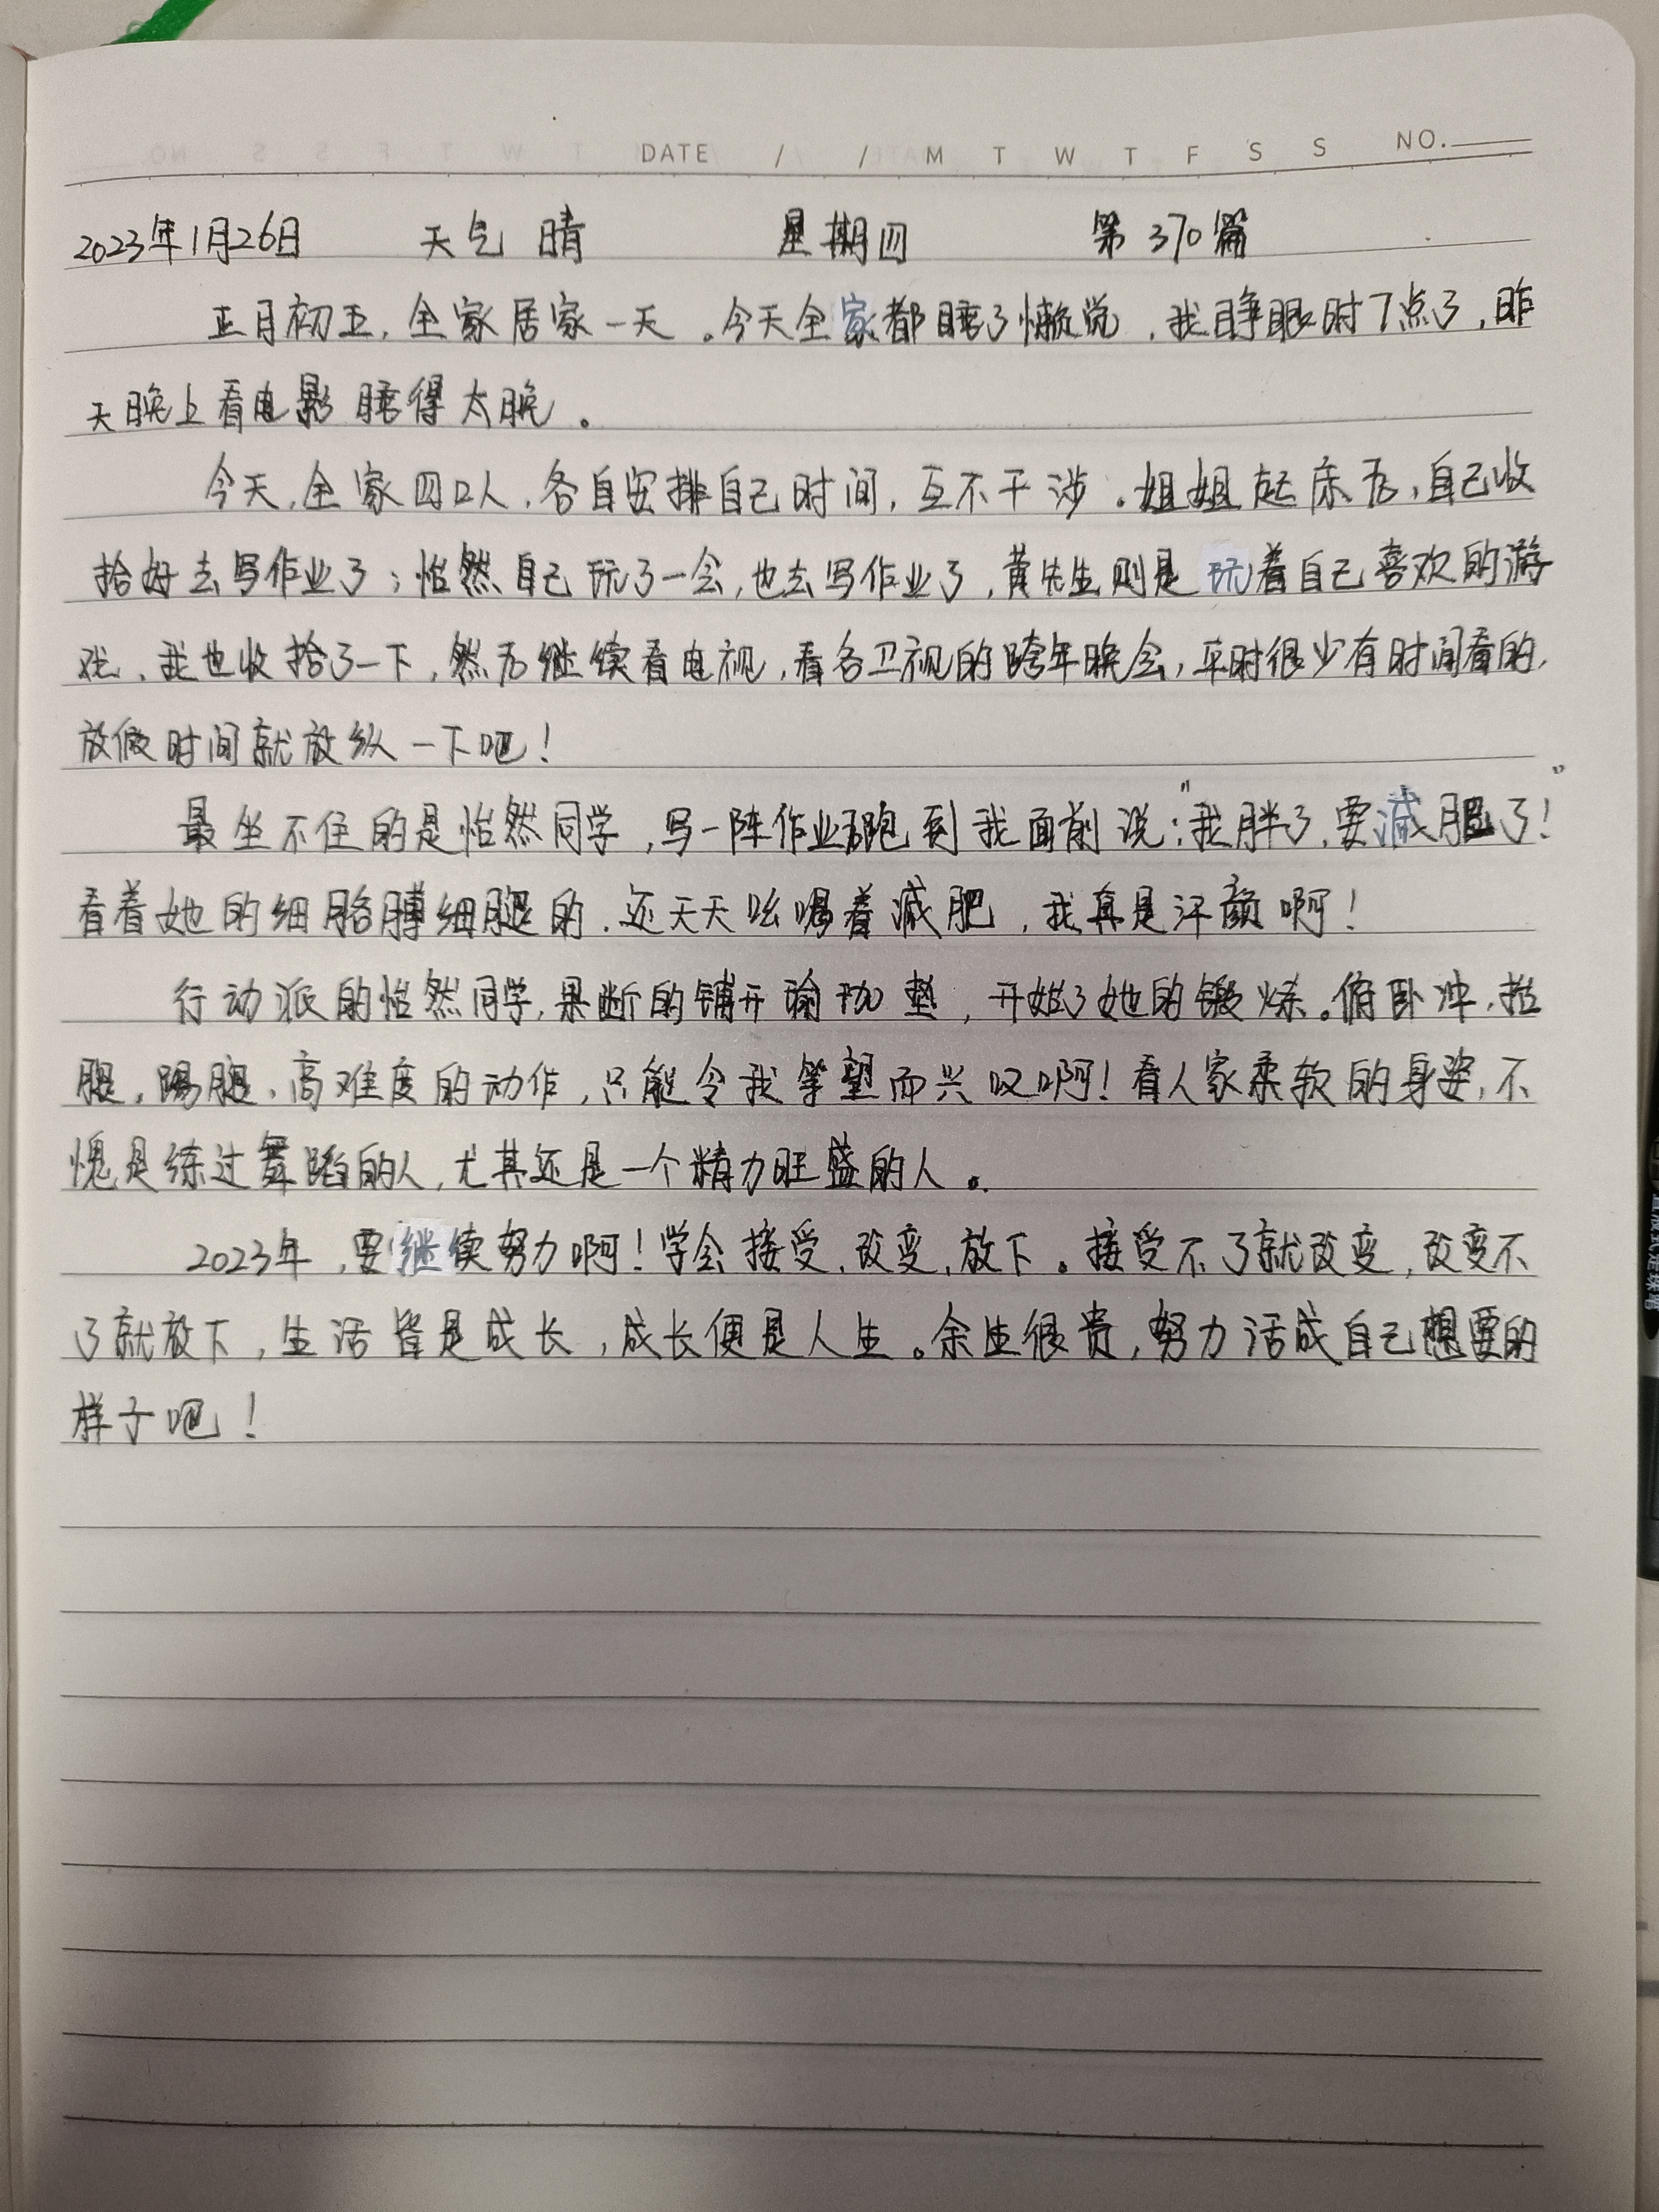 DATE / / M T W T F S S NO.
2023年1月26日 天气 晴 星期四 第370篇
正月初五,全家居家一天。今天全家都睡了懒觉,我睁眼时7点了,昨
天晚上看电影睡得太晚。
今天,全家四口人,各自安排自己时间,互不干涉。姐姐起床后,自己收
拾好去写作业了;怡然自己玩了一会,也去写作业了,黄先生则是玩着自己喜欢的游
戏,我也收拾了一下,然后继续看电视,看各卫视的跨年晚会,平时很少有时间看的,
放假时间就放纵一下吧!
最坐不住的是怡然同学,写一阵作业后跑到我面前说:"我胖了,要减肥了!"
看着她的细胳膊细腿的,还天天吆喝着减肥,我真是汗颜啊!
行动派的怡然同学,果断的铺开瑜珈垫,开始了她的锻炼。俯卧冲,拉
腿,踢腿、高难度的动作,只能令我举望而兴叹啊!看人家柔软的身姿,不
愧是练过舞蹈的人,尤其还是一个精力旺盛的人。
2023年,要继续努力啊!学会接受,改变,放下。接受不了就改变,改变不
了就放下,生活皆是成长,成长便是人生。余生很贵,努力活成自己想要的
样子吧!